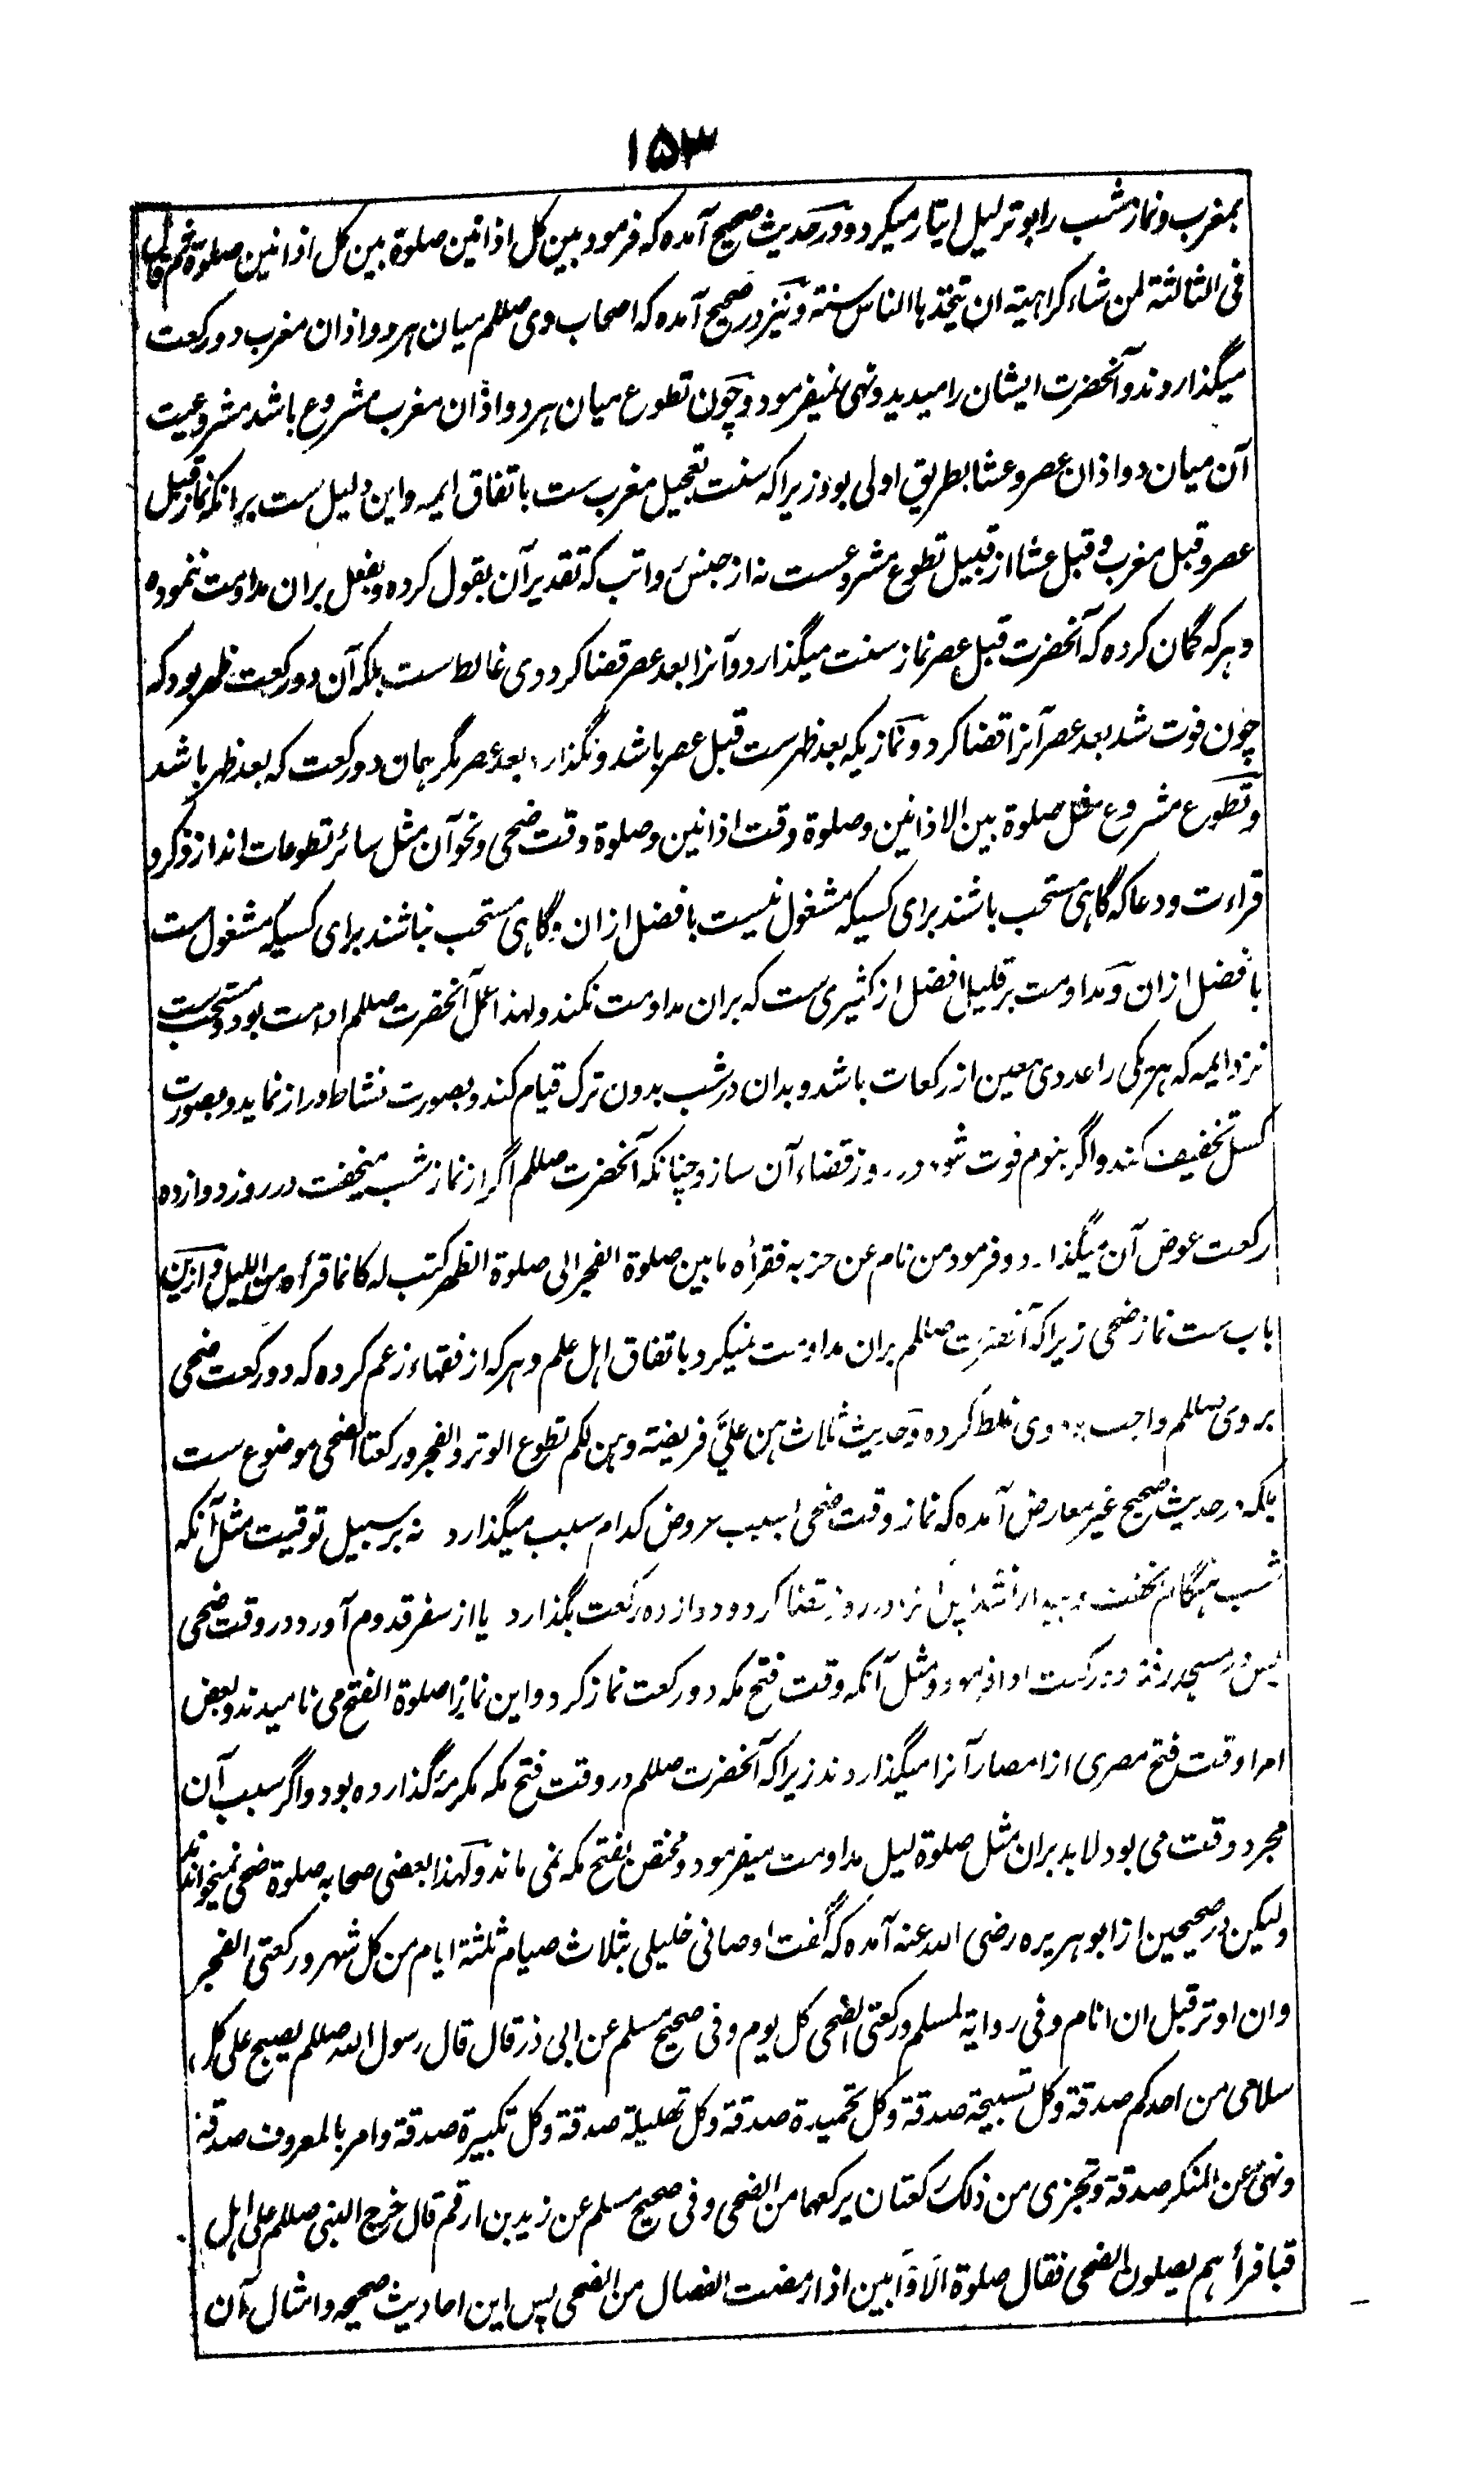 ۱۵۳
بمغرب ونماز شب را بوتر لیل ایتار میکرد و در حدیث صحیح آمده که فرمود بین کل اذانین صلوة بین کل اذانین صلوة ثم قال
فی الثالثة لمن شاء کراهیة ان یتخذها الناس سنة و نیز در صحیح آمده که اصحاب وی صللم میان هر دو اذان مغرب دو رکعت
میگذاردند و آنحضرت ایشان را میدید و نهی نمیفرمود و چون تطوع میان هر دو اذان مغرب مشروع باشد مشروعیت
آن میان دو اذان عصر و عشا بطریق اولی بود زیرا که سنت تعجیل مغرب ست باتفاق ایمه و این دلیل ست برانکه نماز قبل
عصر و قبل مغرب و قبل عشا از قبیل تطوع مشروعست نه از جنس رواتب که تقدیر آن بقول کرده و بفعل بران مداومت ننموده
و هر که گمان کرده که آنحضرت قبل عصر نماز سنت میگذارد و آنرا بعد عصر قضا کرد وی غالط ست بلکه آن دو رکعت ظهر بود که
چون فوت شد بعد عصر آنرا قضا کرد و نماز یکه بعد ظهرست قبل عصر باشد و نگذارد بعد عصر مگر همان دو رکعت که بعد ظهر باشد
و تطوع مشروع مثل صلوة بین الاذانین و صلوة وقت اذانین و صلوة وقت ضحی و نحو آن مثل سائر تطوعات اند از ذکر و
قراءت و دعا که گاهی مستحب باشند برای کسیکه مشغول نیست بافضل ازان و گاهی مستحب نباشند برای کسیکه مشغول ست
بافضل ازان و مداومت بر قلیل افضل از کثیری ست که بران مداومت نکند ولهذا عمل آنحضرت صللم ادامت بود و مستحب ست
نزد ایمه که هر یکی را عددی معین از رکعات باشد و بدان در شب بدون ترک قیام کند و بصورت نشاط دراز نماید و بصورت
کسل تخفیف کند و اگر بنوم فوت شود در روز قضاء آن سازد چنانکه آنحضرت صللم اگر از نماز شب میخفت در روز دوازده
رکعت عوض آن میگذارد و فرمود من نام عن حزبه فقرأه ما بین صلوة الفجر الی صلوة الظهر کتب له کانما قرأه من اللیل و ازین
باب ست نماز ضحی زیرا که آنحضرت صللم بران مداومت نمیکرد باتفاق اهل علم و هر که از فقهاء زعم کرده که دو رکعت ضحی
بر وی صللم واجب بود وی غلط کرده و حدیث ثلاث هن علیّ فریضة و هن لکم تطوع الوتر و الفجر و رکعتا الضحی موضوع ست
بلکه در حدیث صحیح غیر معارض آمده که نماز وقت ضحی بسبب عروض کدام سبب میگذارد نه بر سبیل توقیت مثل آنکه
شب هنگام بخفت و بیدار نشد پس آنرا در روز قضا کرد و دوازده رکعت بگذارد یا از سفر قدوم آورد و در وقت ضحی
پس در مسجد رفته دو رکعت ادا فرمود و مثل آنکه وقت فتح مکه دو رکعت نماز کرد و این نماز را صلوة الفتح می نامیدند و بعض
امرا وقت فتح مصری از امصار آنرا میگذاردند زیرا که آنحضرت صللم در وقت فتح مکه مکرمه گذارده بود و اگر سبب آن
مجرد وقت می بود لابد بران مثل صلوة لیل مداومت میفرمود و مختص بفتح مکه نمی ماند و لهذا بعضی صحابه صلوة ضحی نمیخواندند
ولیکن در صحیحین از ابو هریره رضی الله عنه آمده که گفت اوصانی خلیلی بثلاث صیام ثلثة ایام من کل شهر و رکعتی الفجر
وان اوتر قبل ان انام و فی روایة لمسلم و رکعتی الضحی کل یوم و فی صحیح مسلم عن ابی ذر قال قال رسول الله صللم یصبح علی کل
سلامی من احدکم صدقة و کل تسبیحة صدقة و کل تحمیدة صدقة و کل تهلیلة صدقة و کل تکبیرة صدقة و امر بالمعروف صدقة
و نهی عن المنکر صدقة و تجزی من ذلک رکعتان یرکعهما من الضحی و فی صحیح مسلم عن زید بن ارقم قال خرج النبی صللم علی اهل
قبا فرأهم یصلون الضحی فقال صلوة الاوّابین اذا رمضت الفصال من الضحی پس این احادیث صحیحه و امثال آن